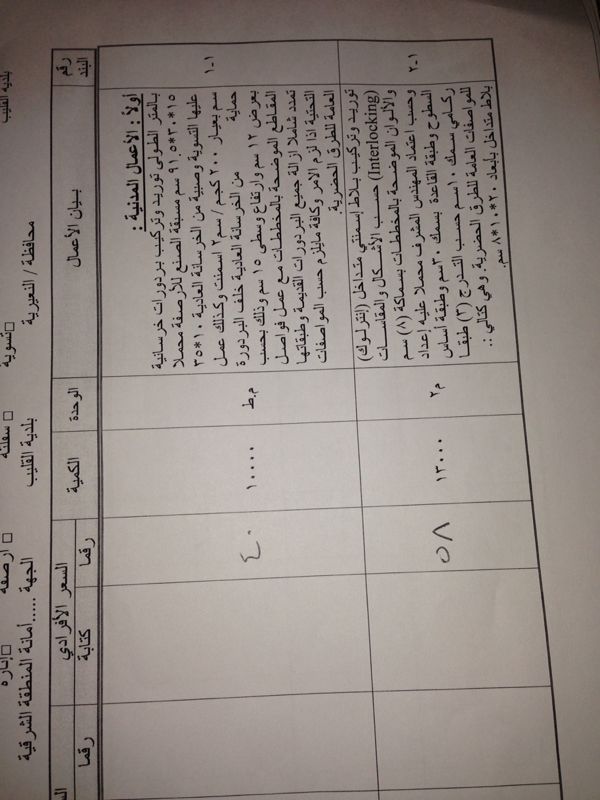 بلدية القليب
محافظة / النعيرية
□تسوية
□ سفلته
□ ارصفه
□إناره
بلدية القليب
الجهة .....أمانة المنطقة الشرقية
رقم البند
بيـان الأعمال
الوحدة
الكمية
السعر الأفرادي
رقما
كتابة
رقما
أولاً : الأعمال المدنية :
١-١
بالمتر الطولى توريد وتركيب بردورات خرسانية
١٥*٣٠*٩١.٥ سم مسبقة الصنع للأرصفة محملا
عليها التسوية وصبية من الخرسانة العادية ١٠*٣٥
سم بعيار ٢٠٠ كجم / سم٢ اسمنت وكذلك عمل حماية
من الخرسانة العادية خلف البردورة
بعرض ١٢ سم وارتفاع وسطى ١٥ سم وذلك بحسب
المقاطع الموضحة بالمخططات مع عمل فواصل
تمدد شاملا ازالة جميع البردورات القديمة وطبقاتها
التحتية اذا لزم الامر وكافة مايلزم حسب المواصفات
العامة للطرق الحضرية.
م.ط
١٠٠٠٠
٤٠
١-٢
توريد وتركيب بلاط إسمنتي متداخل (إنترلوك)
(Interlocking) حسب الأشكال والمقاسات
والألوان الموضحة بالمخططات بسماكة (٨) سم
وحسب اعتماد المهندس المشرف محملا عليه إعداد
السطوح وطبقة القاعدة بسمك ٣٠سم وطبقة اساس
ركامي سمك ١٠سم حسب التدرج (٣) طبقا
للمواصفات العامة للطرق الحضرية. وهي كتالي :.
بلاط متداخل بابعاد ٢٠*١٠*٨ سم.
م٢
١٣٠٠٠
٥٨